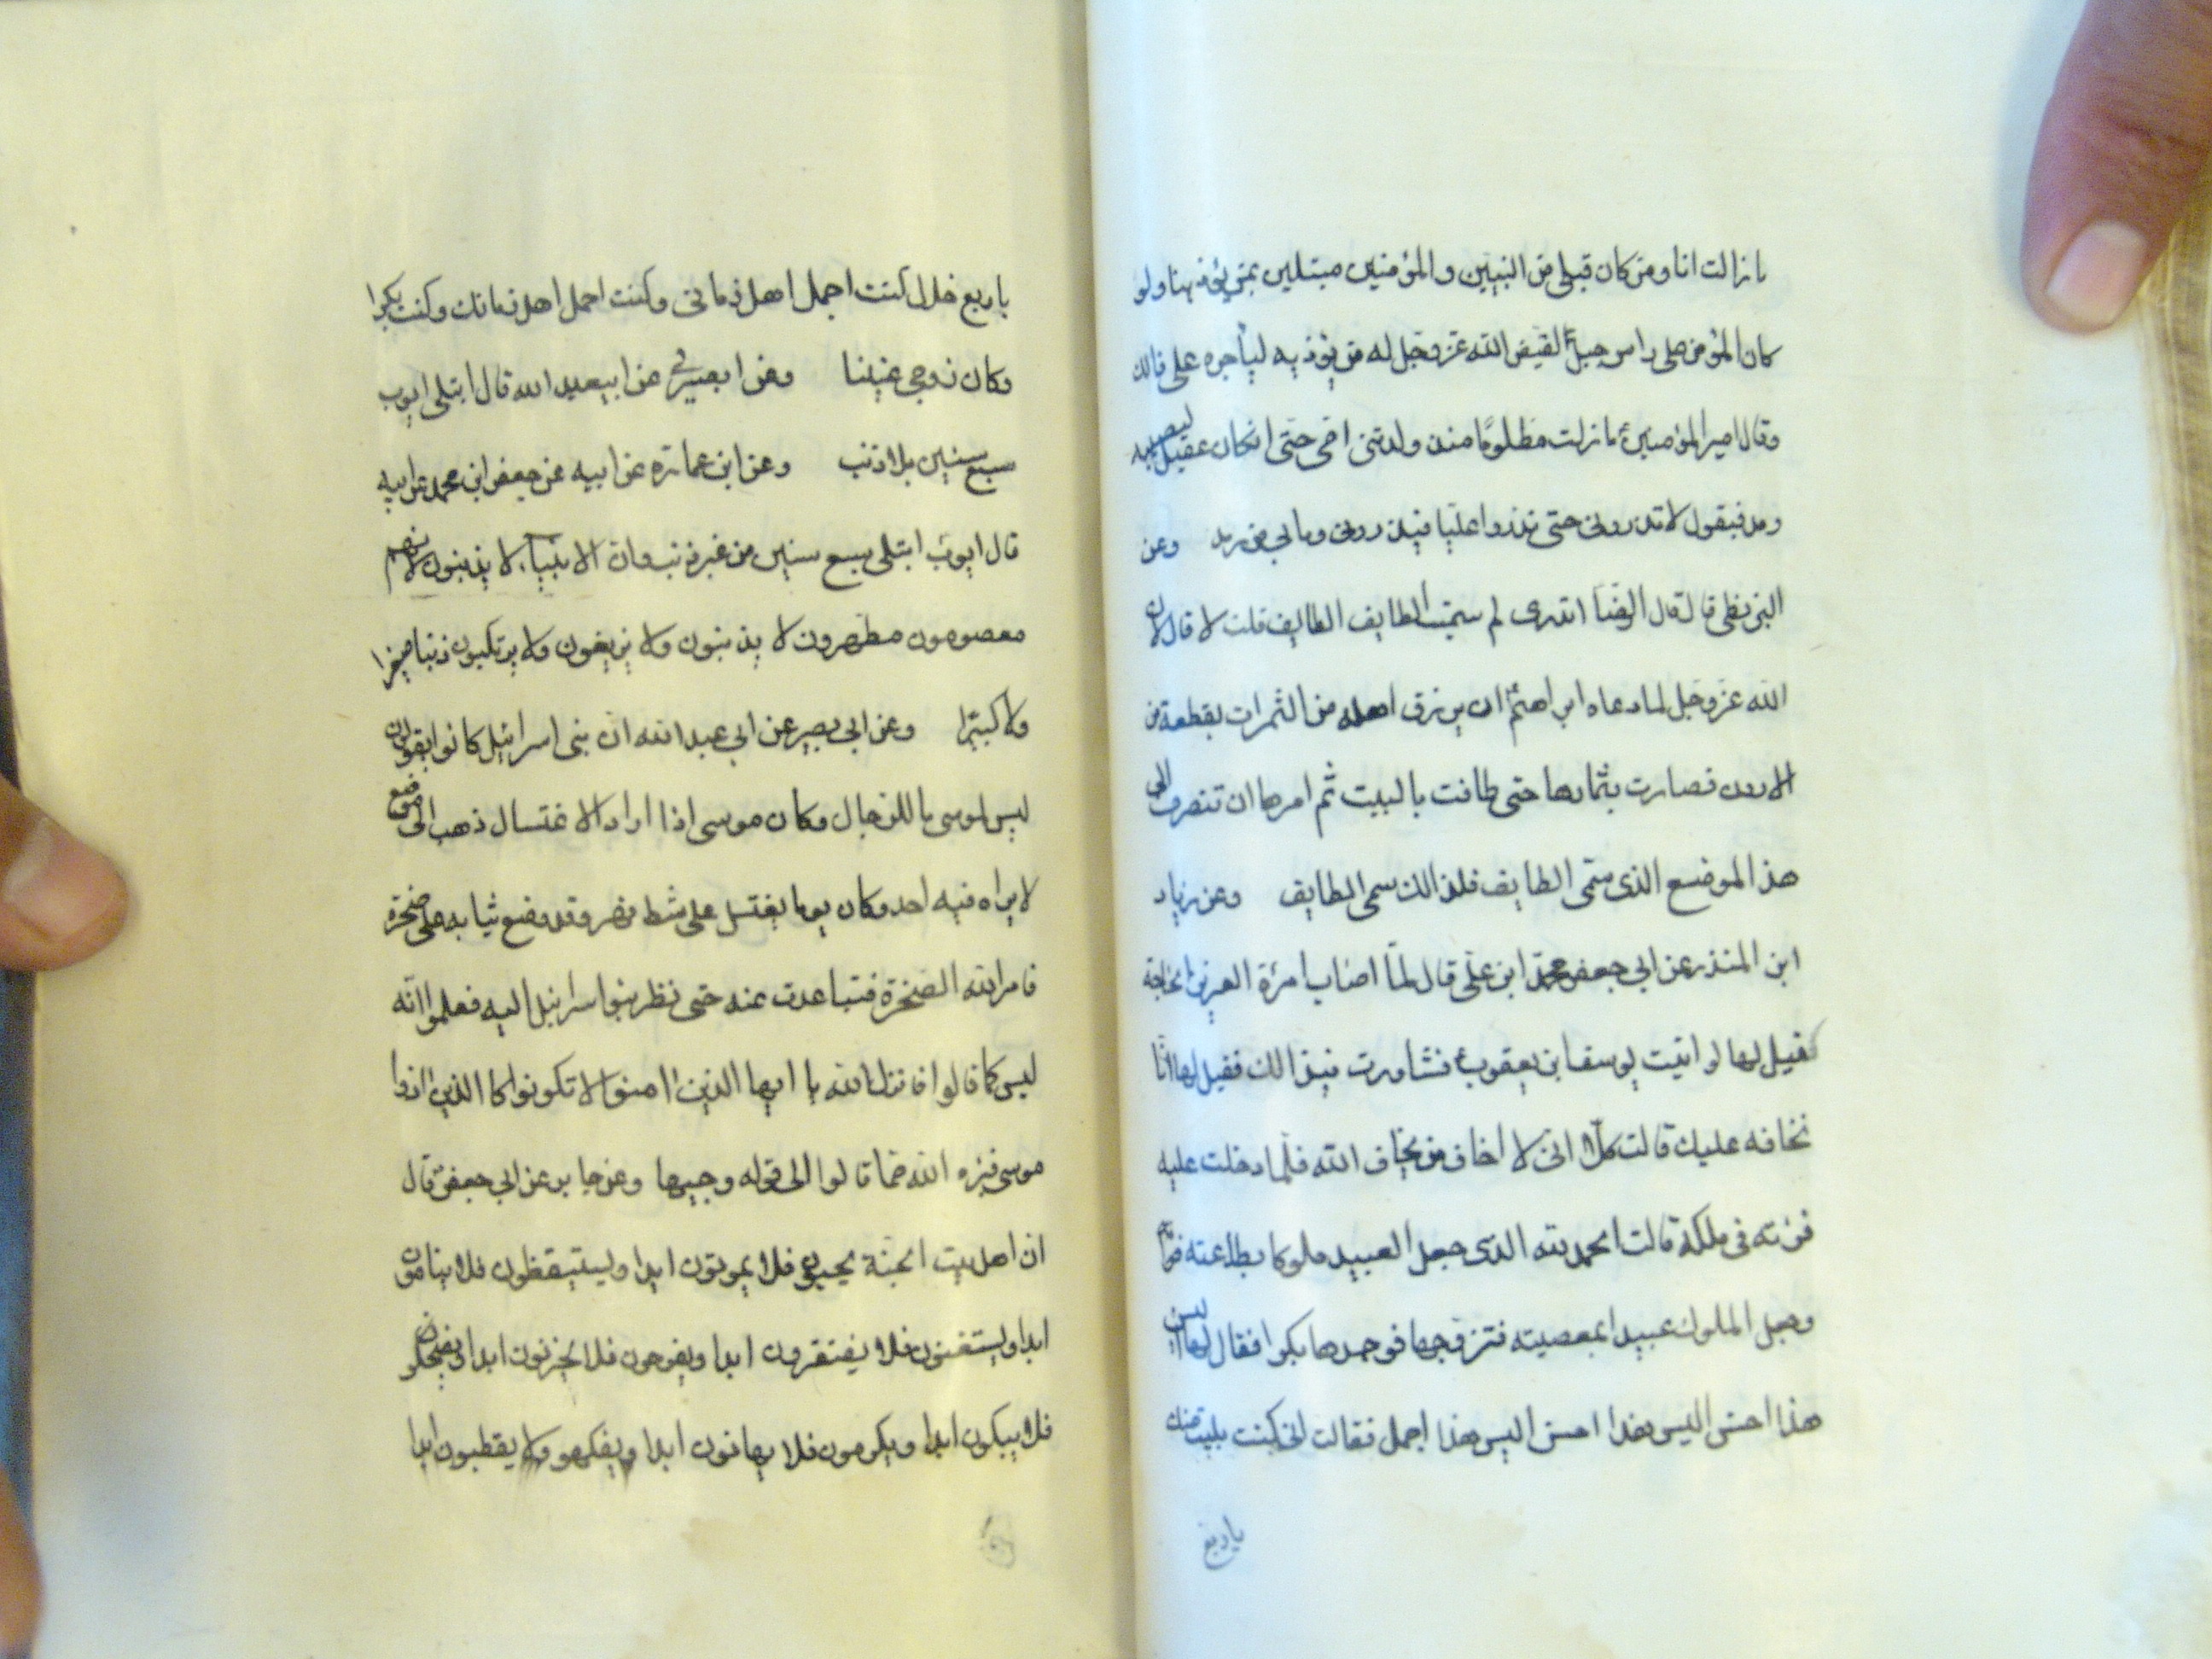 ما زالت انا ومن كان قبلى من النبيين والمؤمنين مبتلين بمن يؤذينا ولو
كان المؤمن على راس جبل لقيض الله عز وجل له من يؤذيه ليأجره على ذالك
وقال امير المؤمنين ع ما زلت مظلومًا منذ ولدتنى امى حتى انكان عقيل ليصيبه
رمد فيقول لا تذرونى حتى تذروا عليًا فيذرونى وما بى من رمد وعن
البزنطى قال قال الرضا اتدرى لم سميت الطايف الطايف قلت لا قال لان
الله عز وجل لما دعاه ابراهيم ان يرزق اهله من الثمرات بقطعة من
الاردن فصارت بثمارها حتى طافت بالبيت ثم امرها ان تنصرف الى
هذا الموضع الذى سمى الطايف فلذالك سمى الطايف وعن زياد
ابن المنذر عن ابى جعفر محمد ابن على قال لما اصاب امرئة العزيز الحاجة
فقيل لها لو اتيت يوسف ابن يعقوب ع فشاورت فى ذالك فقيل لها انا
نخافه عليك قالت كلا انى لا اخاف من يخاف الله فلما دخلت عليه
فرئته فى ملكه قالت الحمد لله الذى جعل العبيد ملوكا بطاعته
وجعل الملوك عبيدا بمعصيته فتزوجها فوجدها بكرا فقال لها اليس
هذا احسن اليس هذا احسن اليس هذا اجمل فقالت انى كنت بليت منك
باربع
باربع خلال كنت اجمل اهل زمانى وكنت اجمل اهل زمانك وكنت بكرا
وكان زوجى عنينا وعن ابى بصير عن ابيعبد الله قال ابتلى ايوب
سبع سنين بلا ذنب وعن ابن عمارة عن ابيه عن جعفر ابن محمد عن ابيه
قال ايوب ابتلى سبع سنين من غير ذنب وان الانبياء لا يذنبون لانهم
معصومون مطهرون لا يذنبون ولا يزيغون ولا يرتكبون ذنبا صغيرا
ولا كبيرا وعن ابى بصير عن ابى عبد الله ان بنى اسرائيل كانوا يقولون
ليس لموسى ما للرجال وكان موسى اذا اراد الاغتسال ذهب الى موضع
لا يراه فيه احد وكان يوما يغتسل على شط نهر وقد وضع ثيابه على صخرة
فامر الله الصخرة فتباعدت عنه حتى نظر بنوا اسرائيل اليه فعلموا انه
ليس كما قالوا فانزل الله يا ايها الذين امنوا لا تكونوا كا الذين اذوا
موسى فبرءه الله مما قالوا الى قوله وجيها وعن جابر عن ابى جعفر قال
ان اهل بيت الجنة يحيون فلا يموتون ابدا ويستيقظون فلا ينامون
ابدا ويستغنون فلا يفتقرون ابدا ويفرحون فلا يحزنون ابدا ويضحكون
فلا يبكون ابدا ويكرمون فلا يهانون ابدا ويفكهو ولا يقطبون ابدا